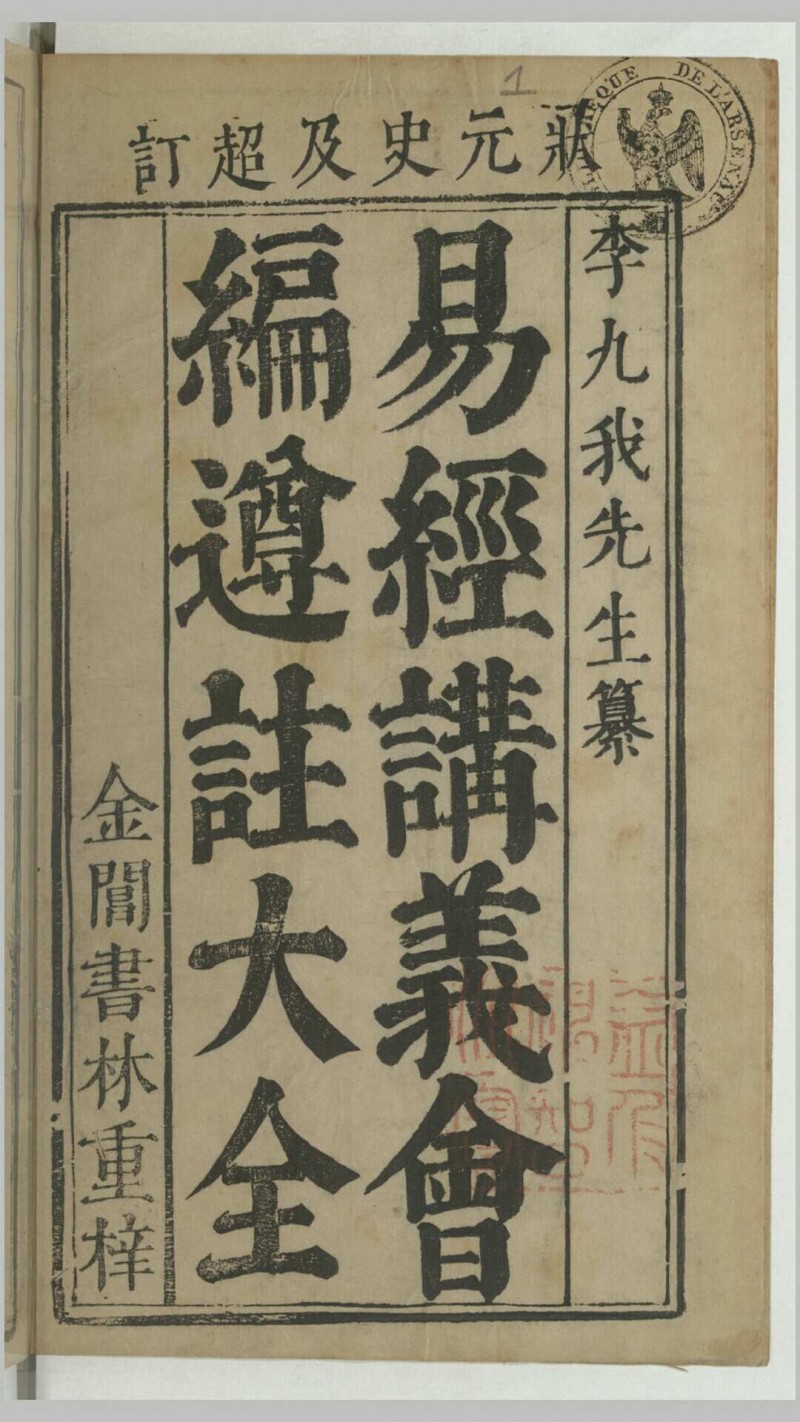 狀元史及超訂
李九我先生纂
易經講義會
編遵註大全
金閶書林重梓
1
DE L'ARSENAL